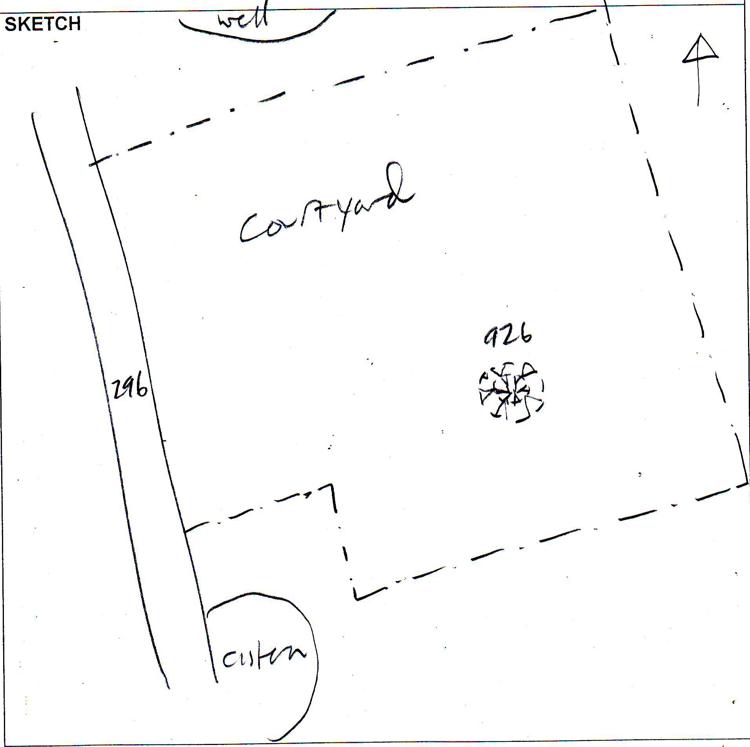 SKETCH
well
Courtyard
926
296
cistern